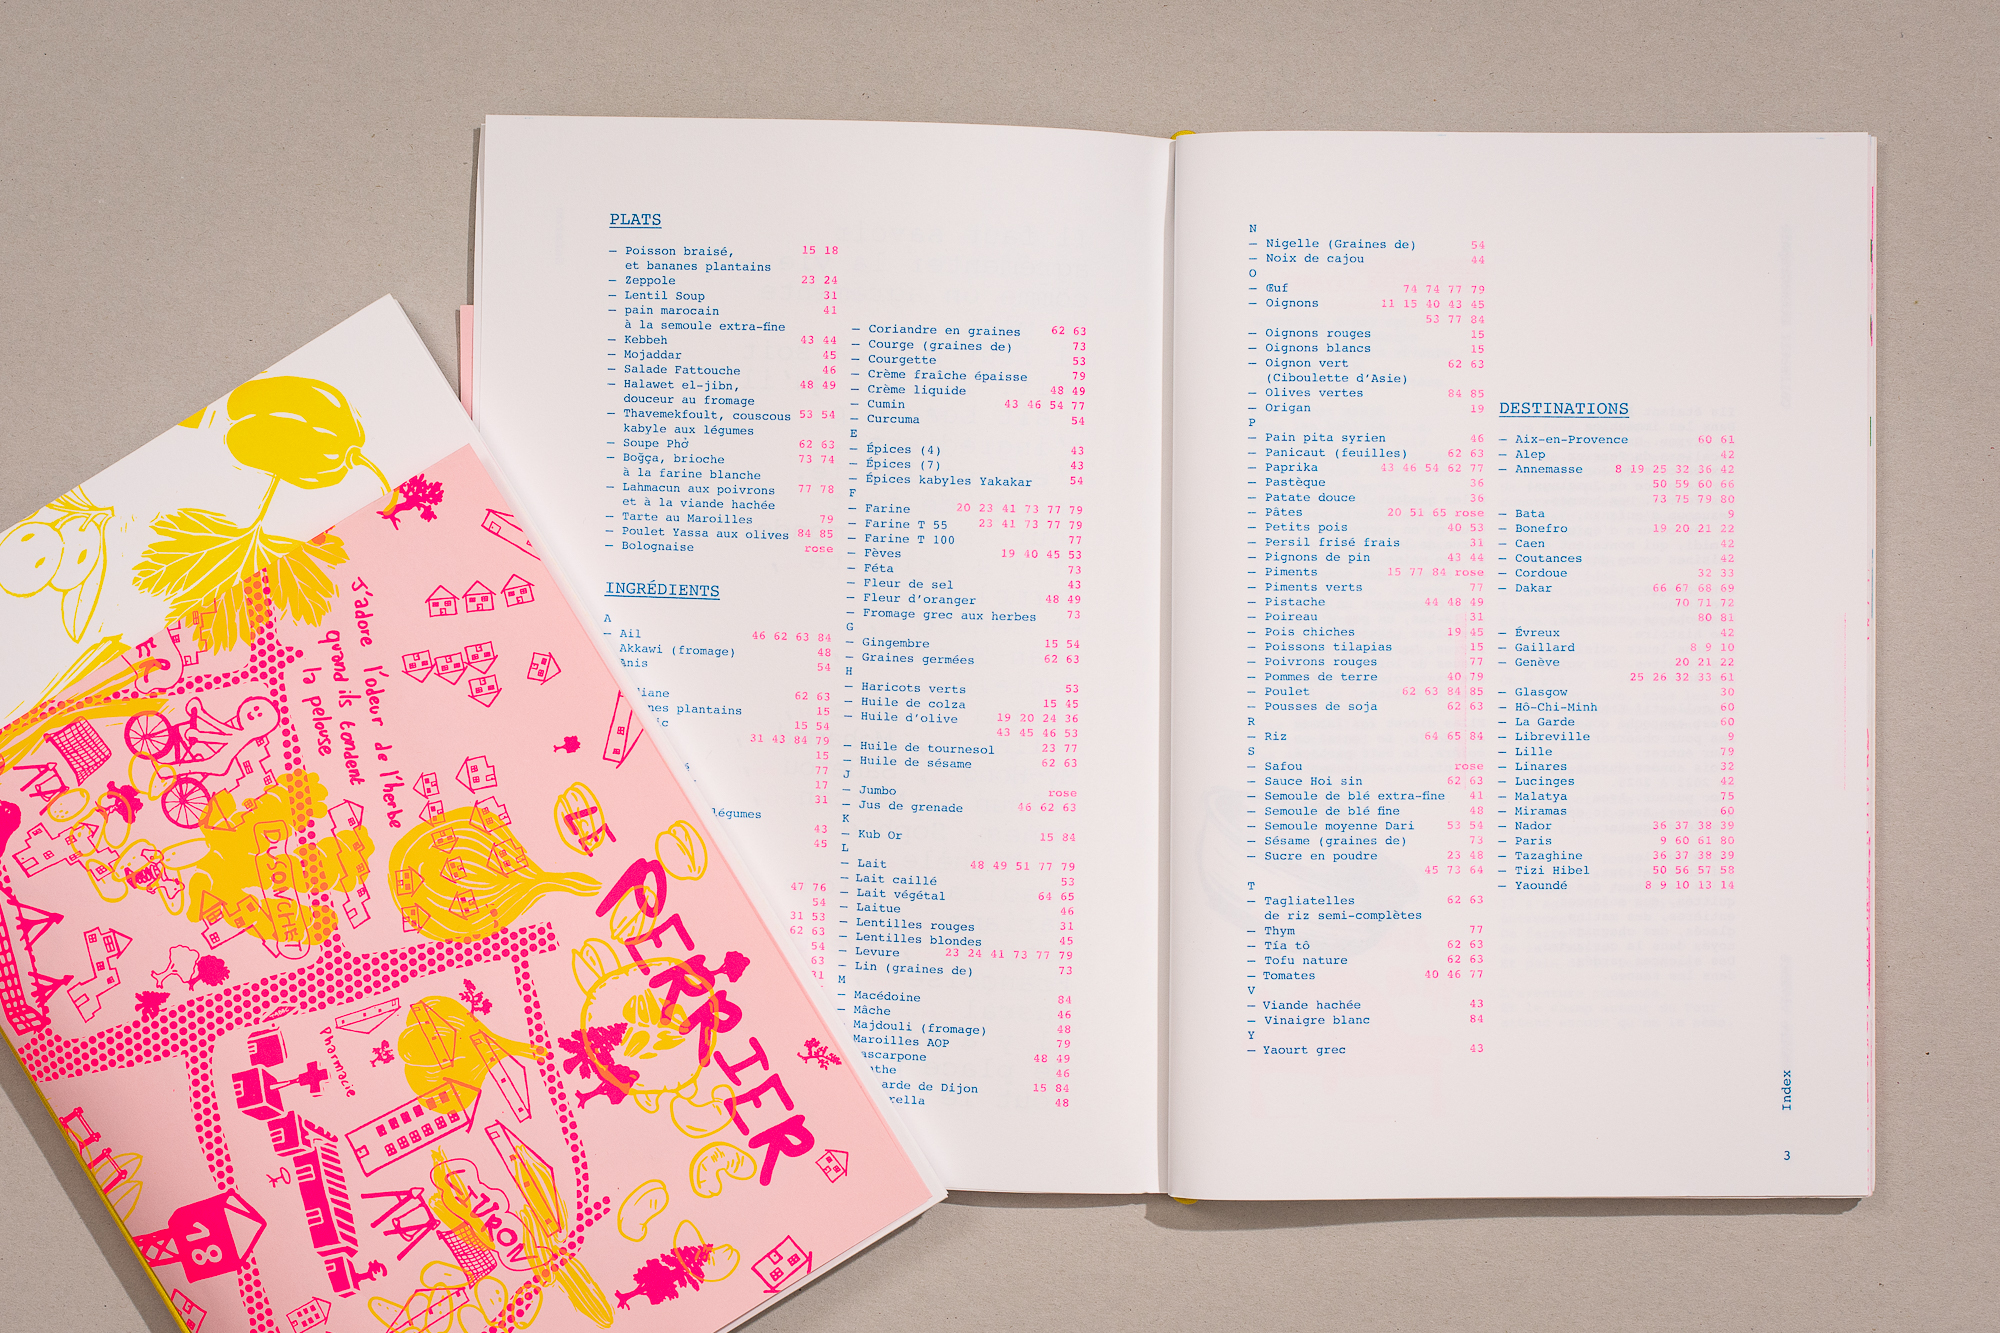 PLATS
— Poisson braisé, 15 18
et bananes plantains
— Zeppole 23 24
— Lentil Soup 31
— pain marocain 41
à la semoule extra-fine
— Kebbeh 43 44
— Mojaddar 45
— Salade Fattouche 46
— Halawet el-jibn, 48 49
douceur au fromage
— Thavemekfoult, couscous 53 54
kabyle aux légumes
— Soupe Phở 62 63
— Boğça, brioche 73 74
à la farine blanche
— Lahmacun aux poivrons 77 78
et à la viande hachée
— Tarte au Maroilles 79
— Poulet Yassa aux olives 84 85
— Bolognaise rose
INGRÉDIENTS
A
— Ail 46 62 63 84
Akkawi (fromage) 48
Anis 54
62 63
plantains 15
15 54
31 43 84 79
15
77
17
31
légumes
43
45
47 76
54
31 53
62 63
54
63
31
— Coriandre en graines 62 63
— Courge (graines de) 73
— Courgette 53
— Crème fraîche épaisse 79
— Crème liquide 48 49
— Cumin 43 46 54 77
— Curcuma 54
E
— Épices (4) 43
— Épices (7) 43
— Épices kabyles Yakakar 54
F
— Farine 20 23 41 73 77 79
— Farine T 55 23 41 73 77 79
— Farine T 100 77
— Fèves 19 40 45 53
— Féta 73
— Fleur de sel 43
— Fleur d'oranger 48 49
— Fromage grec aux herbes 73
G
— Gingembre 15 54
— Graines germées 62 63
H
— Haricots verts 53
— Huile de colza 15 45
— Huile d'olive 19 20 24 36
43 45 46 53
— Huile de tournesol 23 77
— Huile de sésame 62 63
J
— Jumbo rose
— Jus de grenade 46 62 63
K
— Kub Or 15 84
L
— Lait 48 49 51 77 79
— Lait caillé 53
— Lait végétal 64 65
— Laitue 46
— Lentilles rouges 31
— Lentilles blondes 45
— Levure 23 24 41 73 77 79
— Lin (graines de) 73
M
— Macédoine 84
— Mâche 46
Majdouli (fromage) 48
Maroilles AOP 79
ascarpone 48 49
46
de Dijon 15 84
48
N
— Nigelle (Graines de) 54
— Noix de cajou 44
O
— Œuf 74 74 77 79
— Oignons 11 15 40 43 45
53 77 84
— Oignons rouges 15
— Oignons blancs 15
— Oignon vert 62 63
(Ciboulette d'Asie)
— Olives vertes 84 85
— Origan 19
P
— Pain pita syrien 46
— Panicaut (feuilles) 62 63
— Paprika 43 46 54 62 77
— Pastèque 36
— Patate douce 36
— Pâtes 20 51 65 rose
— Petits pois 40 53
— Persil frisé frais 31
— Pignons de pin 43 44
— Piments 15 77 84 rose
— Piments verts 77
— Pistache 44 48 49
— Poireau 31
— Pois chiches 19 45
— Poissons tilapias 15
— Poivrons rouges 77
— Pommes de terre 40 79
— Poulet 62 63 84 85
— Pousses de soja 62 63
R
— Riz 64 65 84
S
— Safou rose
— Sauce Hoi sin 62 63
— Semoule de blé extra-fine 41
— Semoule de blé fine 48
— Semoule moyenne Dari 53 54
— Sésame (graines de) 73
— Sucre en poudre 23 48
45 73 64
T
— Tagliatelles 62 63
de riz semi-complètes
— Thym 77
— Tía tô 62 63
— Tofu nature 62 63
— Tomates 40 46 77
V
— Viande hachée 43
— Vinaigre blanc 84
Y
— Yaourt grec 43
DESTINATIONS
— Aix-en-Provence 60 61
— Alep 42
— Annemasse 8 19 25 32 36 42
50 59 60 66
73 75 79 80
— Bata 9
— Bonefro 19 20 21 22
— Caen 42
— Coutances 42
— Cordoue 32 33
— Dakar 66 67 68 69
70 71 72
80 81
— Évreux 42
— Gaillard 8 9 10
— Genève 20 21 22
25 26 32 33 61
— Glasgow 30
— Hô-Chi-Minh 60
— La Garde 60
— Libreville 9
— Lille 79
— Linares 32
— Lucinges 42
— Malatya 75
— Miramas 60
— Nador 36 37 38 39
— Paris 9 60 61 80
— Tazaghine 36 37 38 39
— Tizi Hibel 50 56 57 58
— Yaoundé 8 9 10 13 14
Index
3
J'adore l'odeur de l'herbe
quand ils tondent
la pelouse
LE PERRIER
DUSONCHET
Pharmacie
LIVRON
18